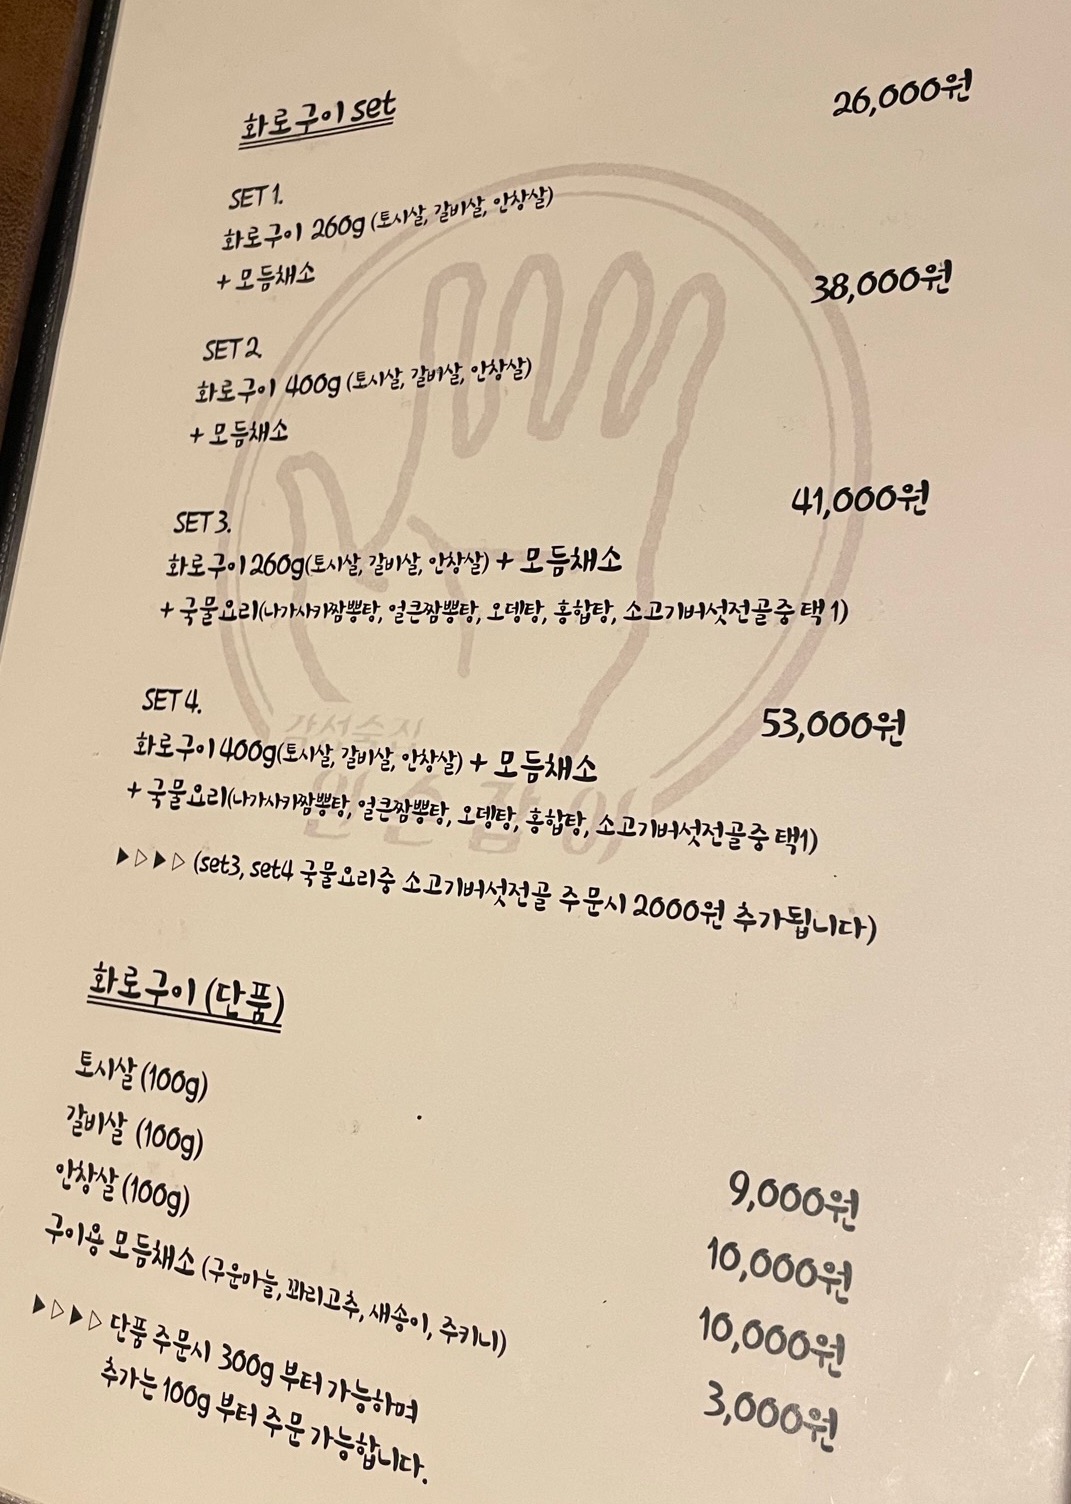 화로구이 set
26,000원
SET 1.
화로구이 260g (토시살, 갈비살, 안창살)
+ 모듬채소
38,000원
SET 2
화로구이 400g (토시살, 갈비살, 안창살)
+ 모듬채소
41,000원
SET 3.
화로구이 260g(토시살, 갈비살, 안창살) + 모듬채소
+ 국물요리(나가사키짬뽕탕, 얼큰짬뽕탕, 오뎅탕, 홍합탕, 소고기버섯전골중 택1)
SET 4.
53,000원
화로구이 400g(토시살, 갈비살, 안창살) + 모듬채소
+ 국물요리(나가사키짬뽕탕, 얼큰짬뽕탕, 오뎅탕, 홍합탕, 소고기버섯전골중 택1)
▶▷▶▷ (set3, set4 국물요리중 소고기버섯전골 주문시 2000원 추가됩니다)
감성술집
왼손잡이
화로구이 (단품)
토시살 (100g) 9,000원
갈비살 (100g) 10,000원
안창살 (100g) 10,000원
구이용 모듬채소 (구운마늘, 꽈리고추, 새송이, 주키니) 3,000원
▶▷▶▷ 단품 주문시 300g 부터 가능하며
추가는 100g 부터 주문 가능합니다.